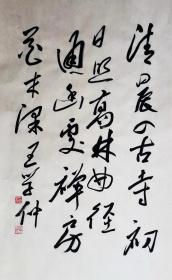 清晨入古寺初
日照高林曲径
通幽處禪房
花木深 王学仲